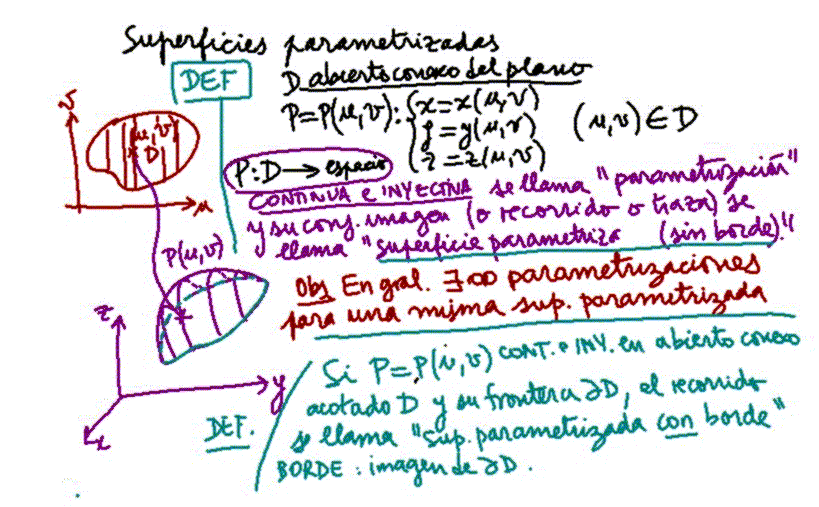 Superficies parametrizadas
DEF
D abierto conexo del plano
P=P(u,v): { x=x(u,v)
y=y(u,v) (u,v) ∈ D
z=z(u,v)
v
(u,v)
D
u
P:D → espacio
CONTINUA e INYECTIVA se llama "parametrización"
y su conj. imagen (o recorrido o traza) se
llama "superficie parametriza (sin borde)."
P(u,v)
Obs En gral. ∃ ∞ parametrizaciones
para una misma sup. parametrizada
z
y
x
DEF.
Si P=P(u,v) CONT. e INY. en abierto conexo
acotado D y su frontera ∂D, el recorrido
se llama "sup. parametrizada con borde"
BORDE: imagen de ∂D.